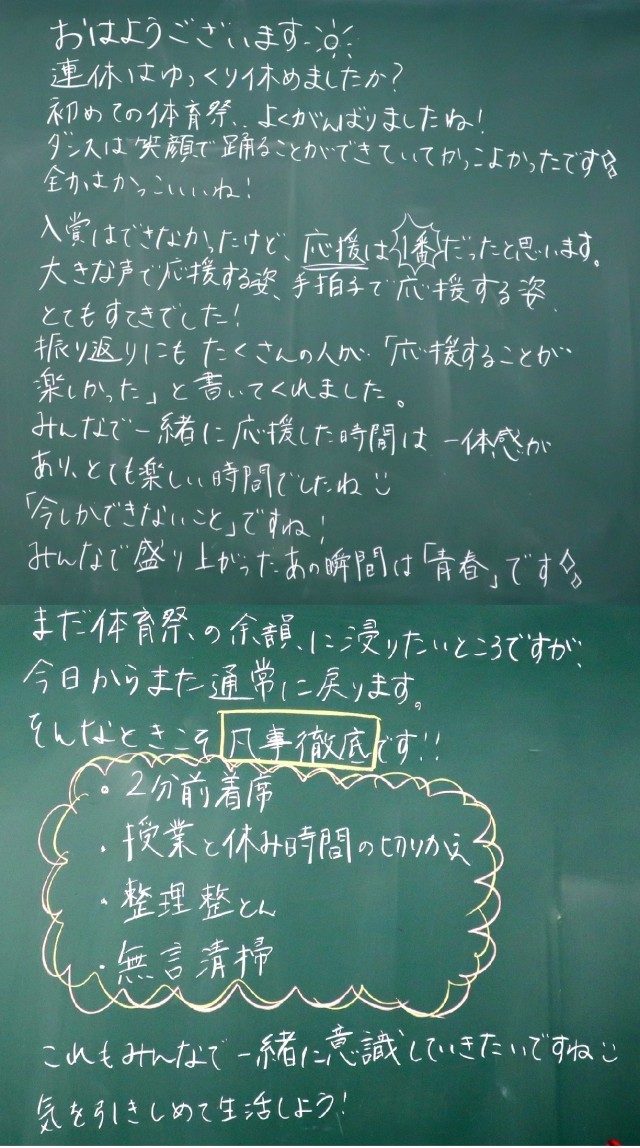 おはようございます
連休はゆっくり休めましたか?
初めての体育祭、よくがんばりましたね!
ダンスは笑顔で踊ることができていてかっこよかったです
全力はかっこいいね!
入賞はできなかったけど、応援は1番だったと思います。
大きな声で応援する姿、手拍子で応援する姿
とてもすてきでした!
振り返りにもたくさんの人が「応援することが
楽しかった」と書いてくれました。
みんなで一緒に応援した時間は一体感が
あり、とても楽しい時間でしたね
「今しかできないこと」ですね!
みんなで盛り上がったあの瞬間は「青春」です
まだ体育祭の余韻に浸りたいところですが、
今日からまた通常に戻ります。
そんなときこそ凡事徹底です!!
・2分前着席
・授業と休み時間の切りかえ
・整理整とん
・無言清掃
これもみんなで一緒に意識していきたいですね
気を引きしめて生活しよう!